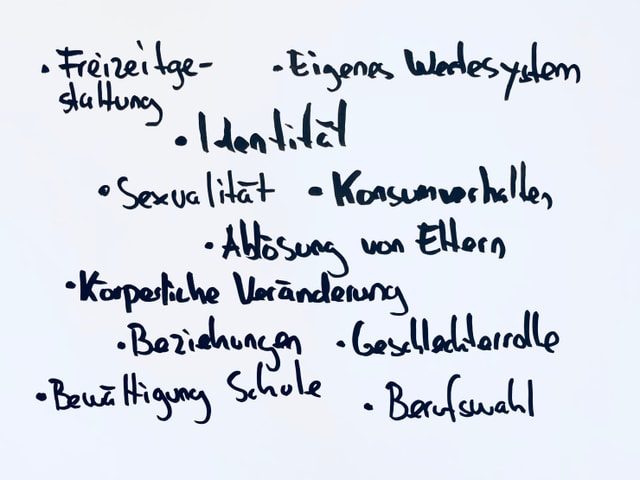 • Freizeitge-
staltung
• Eigenes Wertesystem
• Identität
• Sexualität • Konsumverhalten
• Ablösung von Eltern
• Körperliche Veränderung
• Beziehungen • Geschlechterrolle
• Bewältigung Schule
• Berufswahl